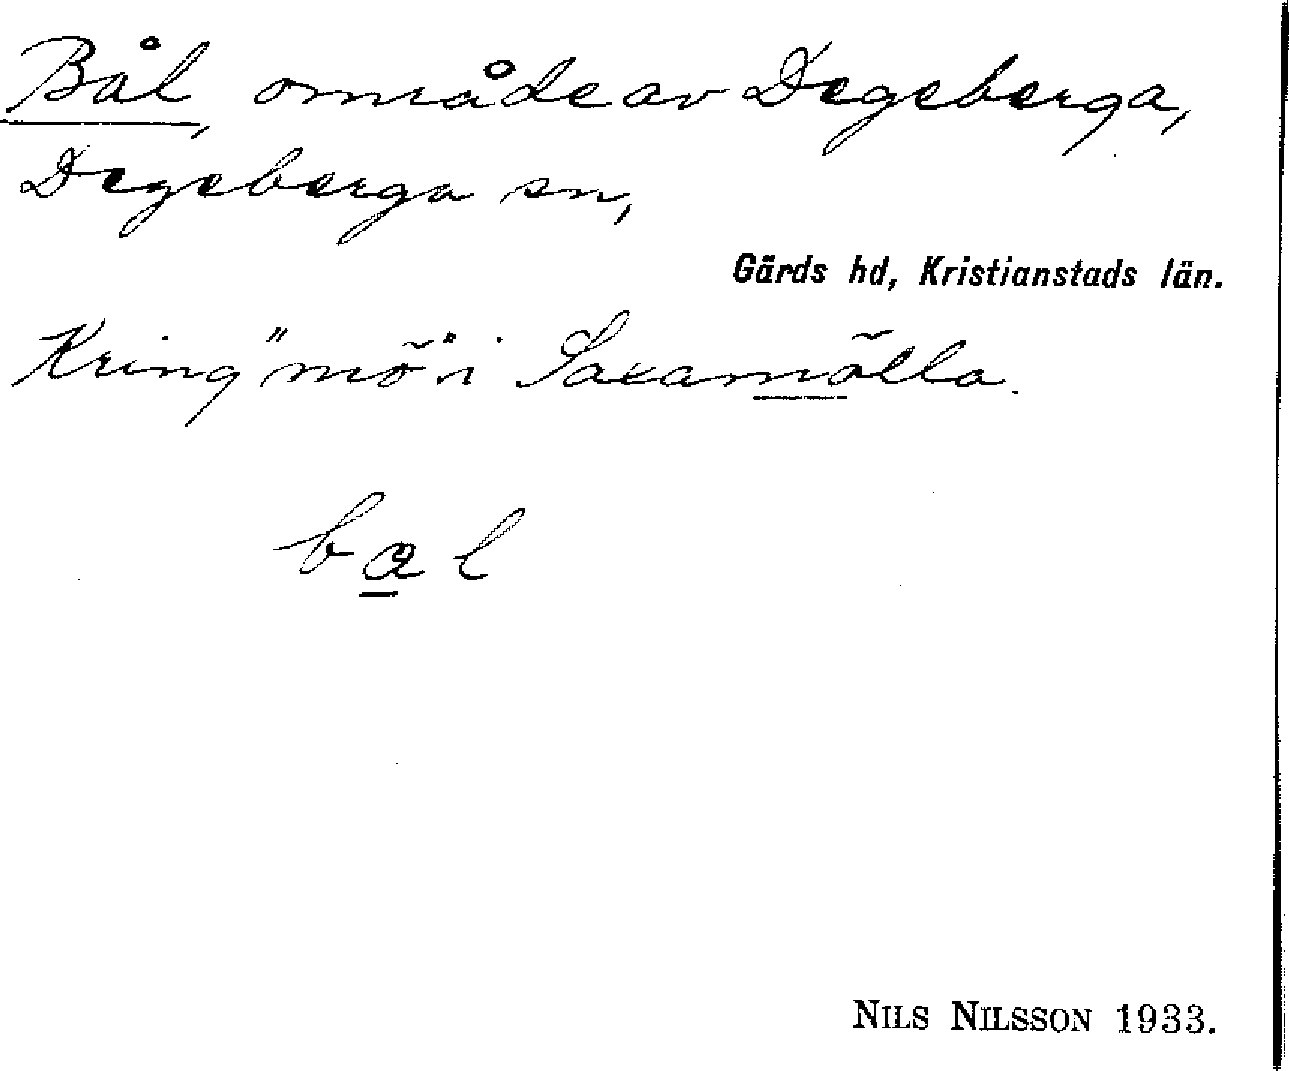 Bål, område av Degeberga,
Degeberga sn,
Gärds hd, Kristianstads län.
Kring "mö" i Saxamölla.
bal
NILS NILSSON 1933.